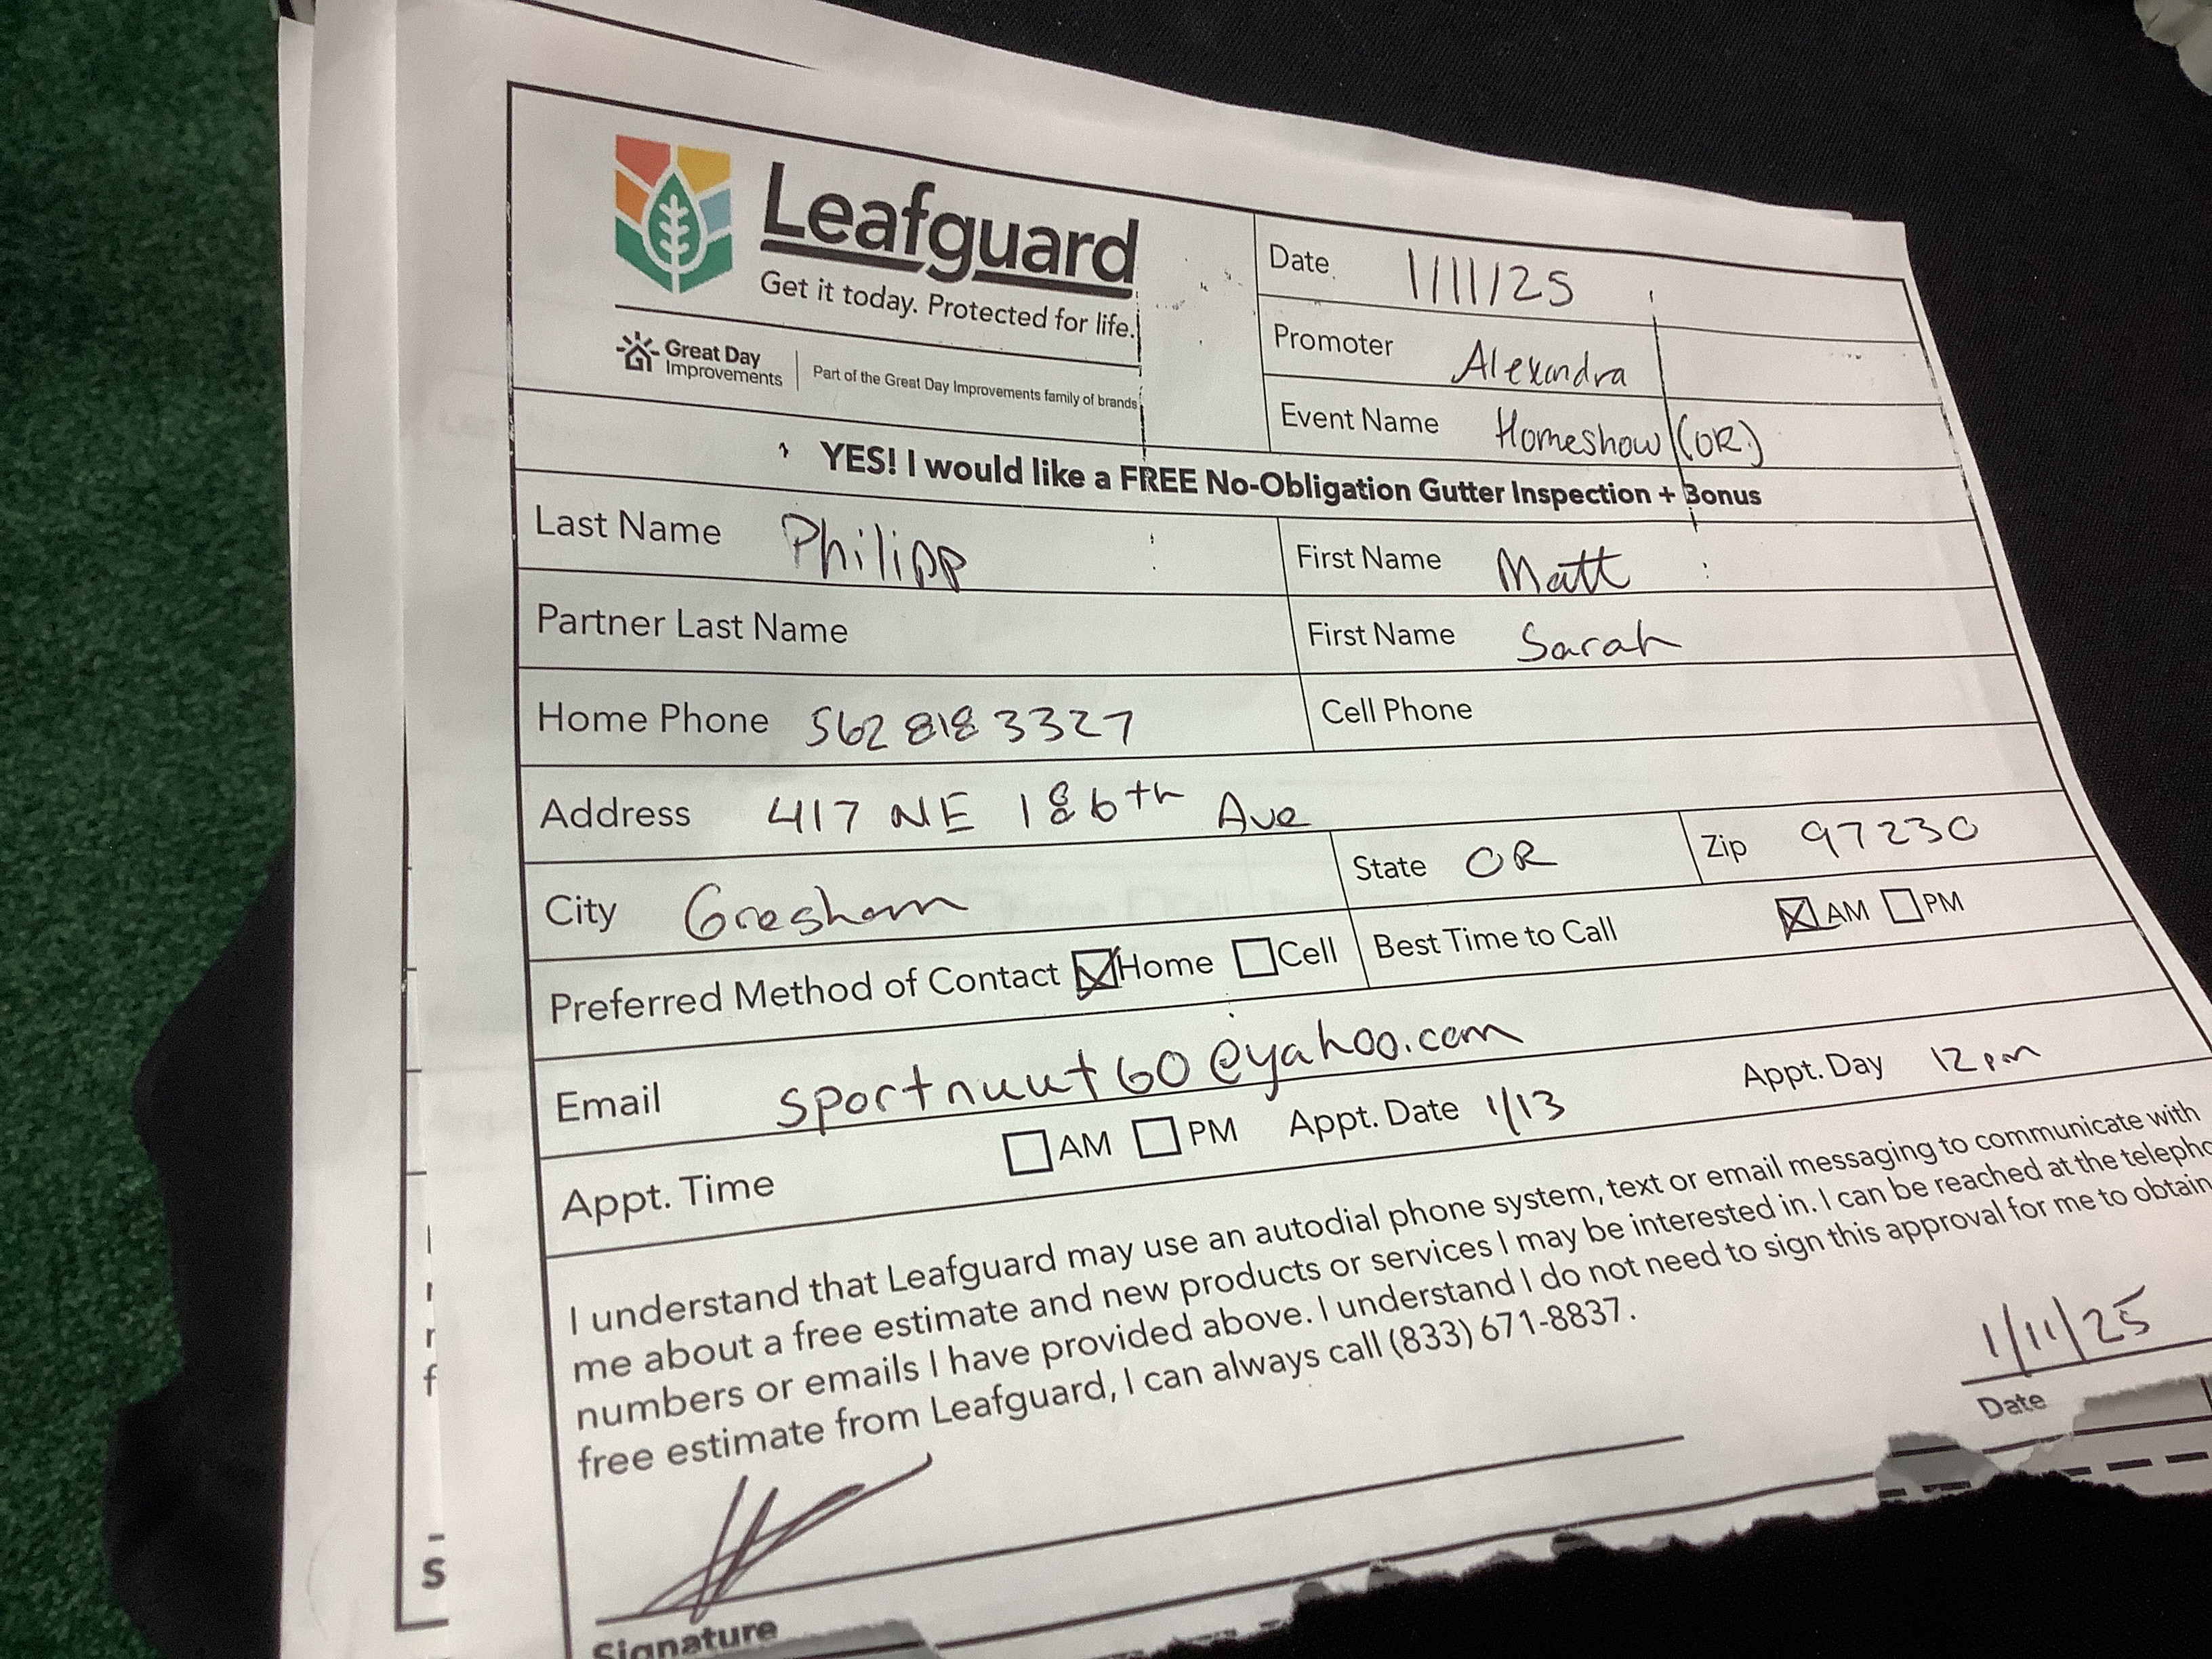 Leafguard
Get it today. Protected for life.
Great Day Improvements | Part of the Great Day Improvements family of brands
Date 1/11/25
Promoter Alexandra
Event Name Homeshow (OR)
YES! I would like a FREE No-Obligation Gutter Inspection + Bonus
Last Name Philipp First Name Matt
Partner Last Name First Name Sarah
Home Phone 562 818 3327 Cell Phone
Address 417 NE 186th Ave
City Gresham State OR Zip 97230
Preferred Method of Contact ☒ Home ☐ Cell Best Time to Call ☒ AM ☐ PM
Email sportnuut60@yahoo.com
Appt. Time ☐ AM ☐ PM Appt. Date 1/13 Appt. Day 12pm
I understand that Leafguard may use an autodial phone system, text or email messaging to communicate with
me about a free estimate and new products or services I may be interested in. I can be reached at the telepho
numbers or emails I have provided above. I understand I do not need to sign this approval for me to obtain
free estimate from Leafguard, I can always call (833) 671-8837.
1/11/25
Signature Date